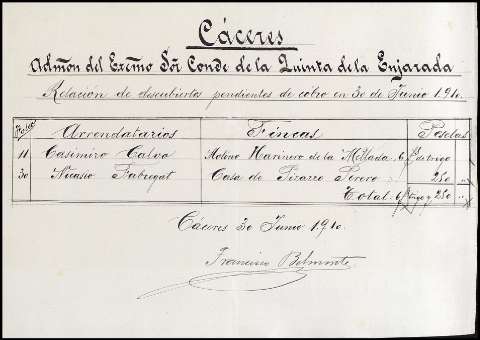 Cáceres
Admón del Excmo Sōr Conde de la Quinta de la Enjarada
Relación de descubiertos pendientes de cobro en 30 de Junio 1910.
Folio Arrendatarios Fincas Pesetas
11 Casimiro Calvo Molino Harinero de la Mellada 6 de trigo
30 Nicasio Fabregat Casa de Pizarro 250 "
Total 6 trigo y 250 "
Cáceres 30 Junio 1910.
Francisco Belmonte